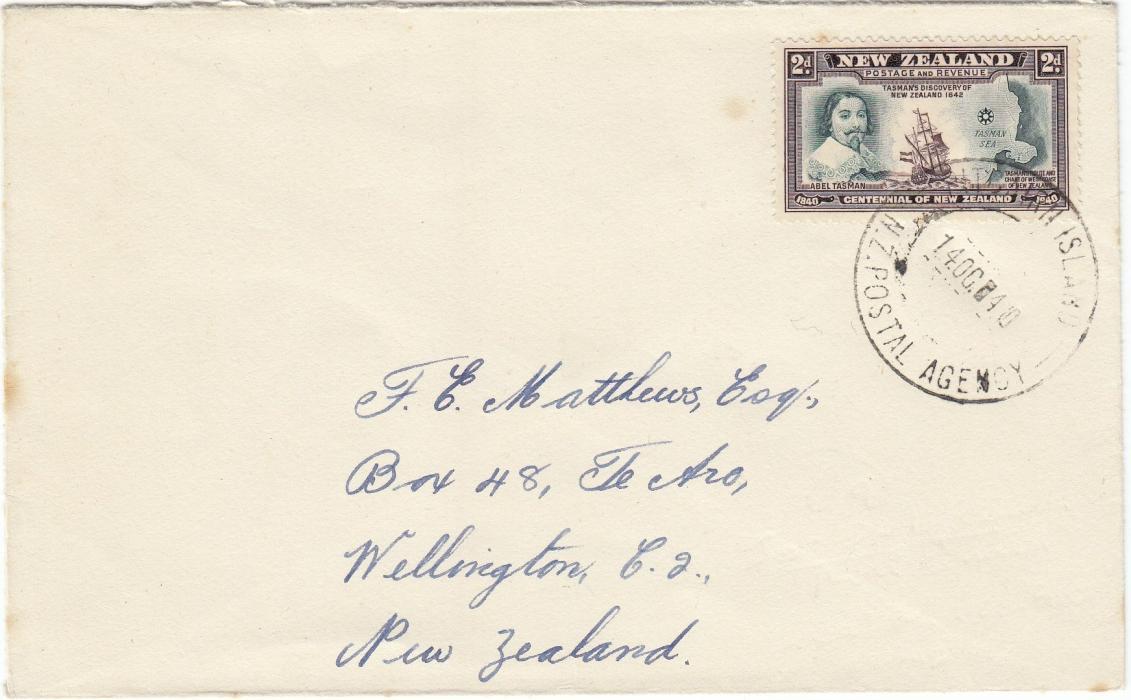 2d NEW ZEALAND 2d
POSTAGE AND REVENUE
TASMAN'S DISCOVERY OF
NEW ZEALAND 1642
TASMAN
SEA
ABEL TASMAN
TASMAN'S ROUTE AND
CHART OF WEST COAST
OF NEW ZEALAND
1840 CENTENNIAL OF NEW ZEALAND 1940
ISLAND
N.Z. POSTAL AGENCY
F. E. Matthews, Esq.,
Box 48, Te Aro,
Wellington, C.2.,
New Zealand.